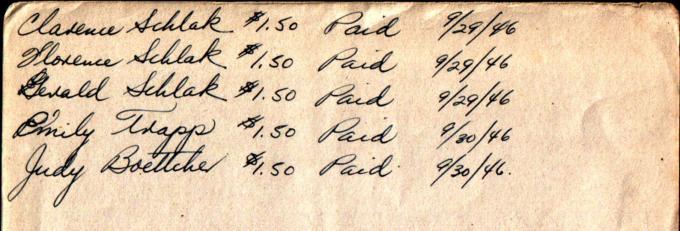 Clarence Schlak $1.50 Paid 9/29/46
Florence Schlak $1.50 Paid 9/29/46
Gerald Schlak $1.50 Paid 9/29/46
Emily Trapp $1.50 Paid 9/30/46
Judy Boettcher $1.50 Paid 9/30/46.